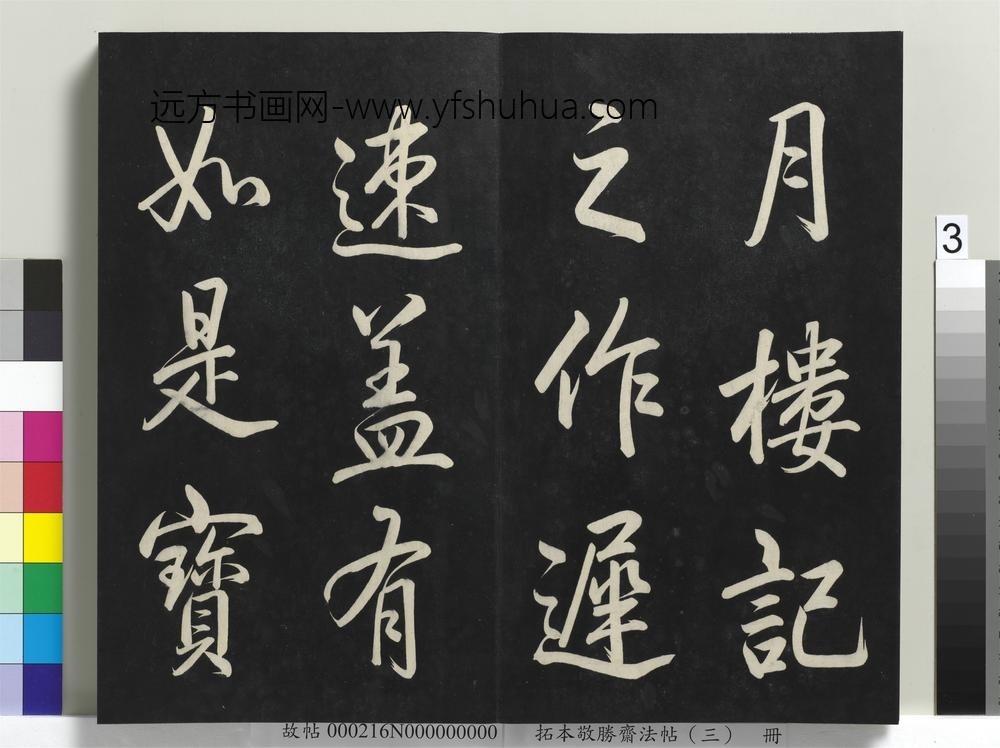 远方书画网-www.yfshuhua.com
月樓記
之作遲
速蓋有
如是寶
3
故帖 000216N000000000 拓本敬勝齋法帖（三） 冊